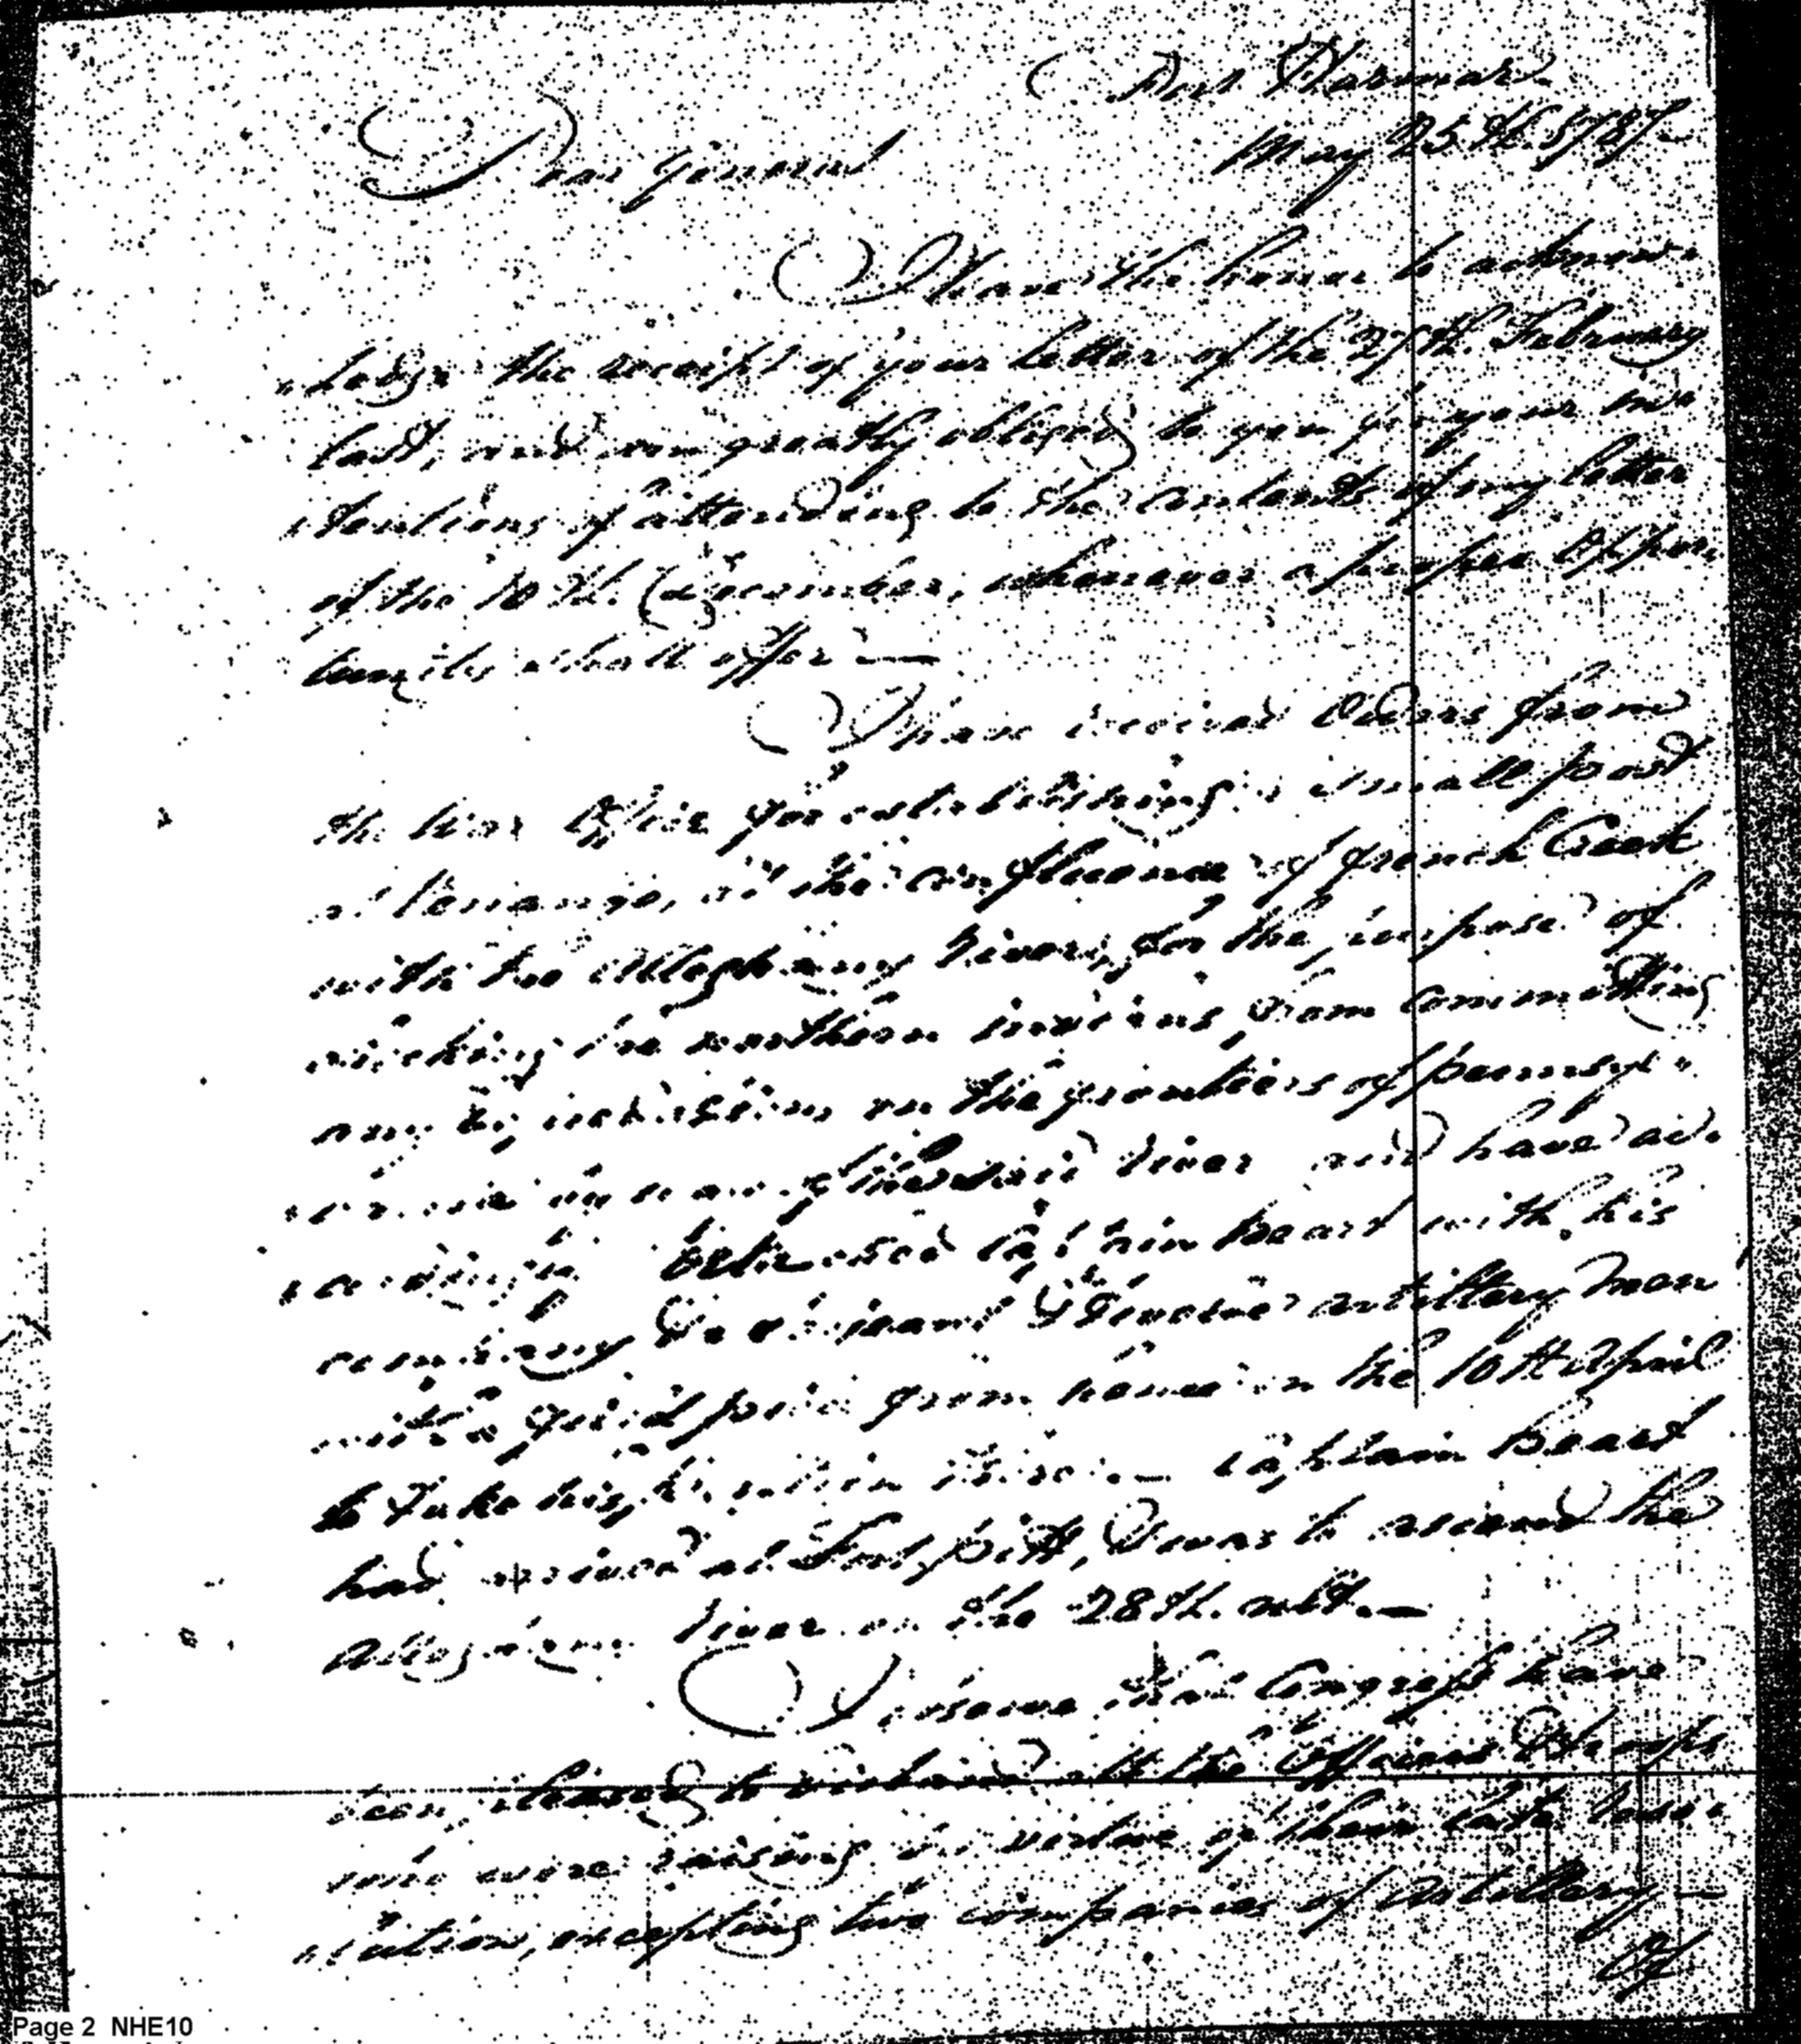 Fort Harmar
May 25th. 1787—
Dear General
I have the honor to acknow-
-ledge the receipt of your letter of the 27th. February
last, and am greatly obliged to you for your in-
-tentions of attending to the contents of my letter
of the 10th. December, whenever a proper oppor-
tunity shall offer—
I have received Orders from
the War Office for establishing a small post
at Venango, at the confluence of french Creek
with the Alleghany River, for the purpose of
checking the northern indians from committing
any incursions on the frontiers of pennsyl-
river and have ac-
-cordingly detached Captain Heart with his
company, a Serjeant & twelve artillery Men
with a field piece from hence on the 10th April
to take his position there.— Captain Heart
had arrived at Fort pitt, & was to ascend the
Alleghany river on the 28th. ult.—
I observe that Congress have
been pleased to disband all the Officers & troops
who were raising in virtue of their late reso-
-lution, excepting two companies of artillery—
Of
Page 2 NHE10